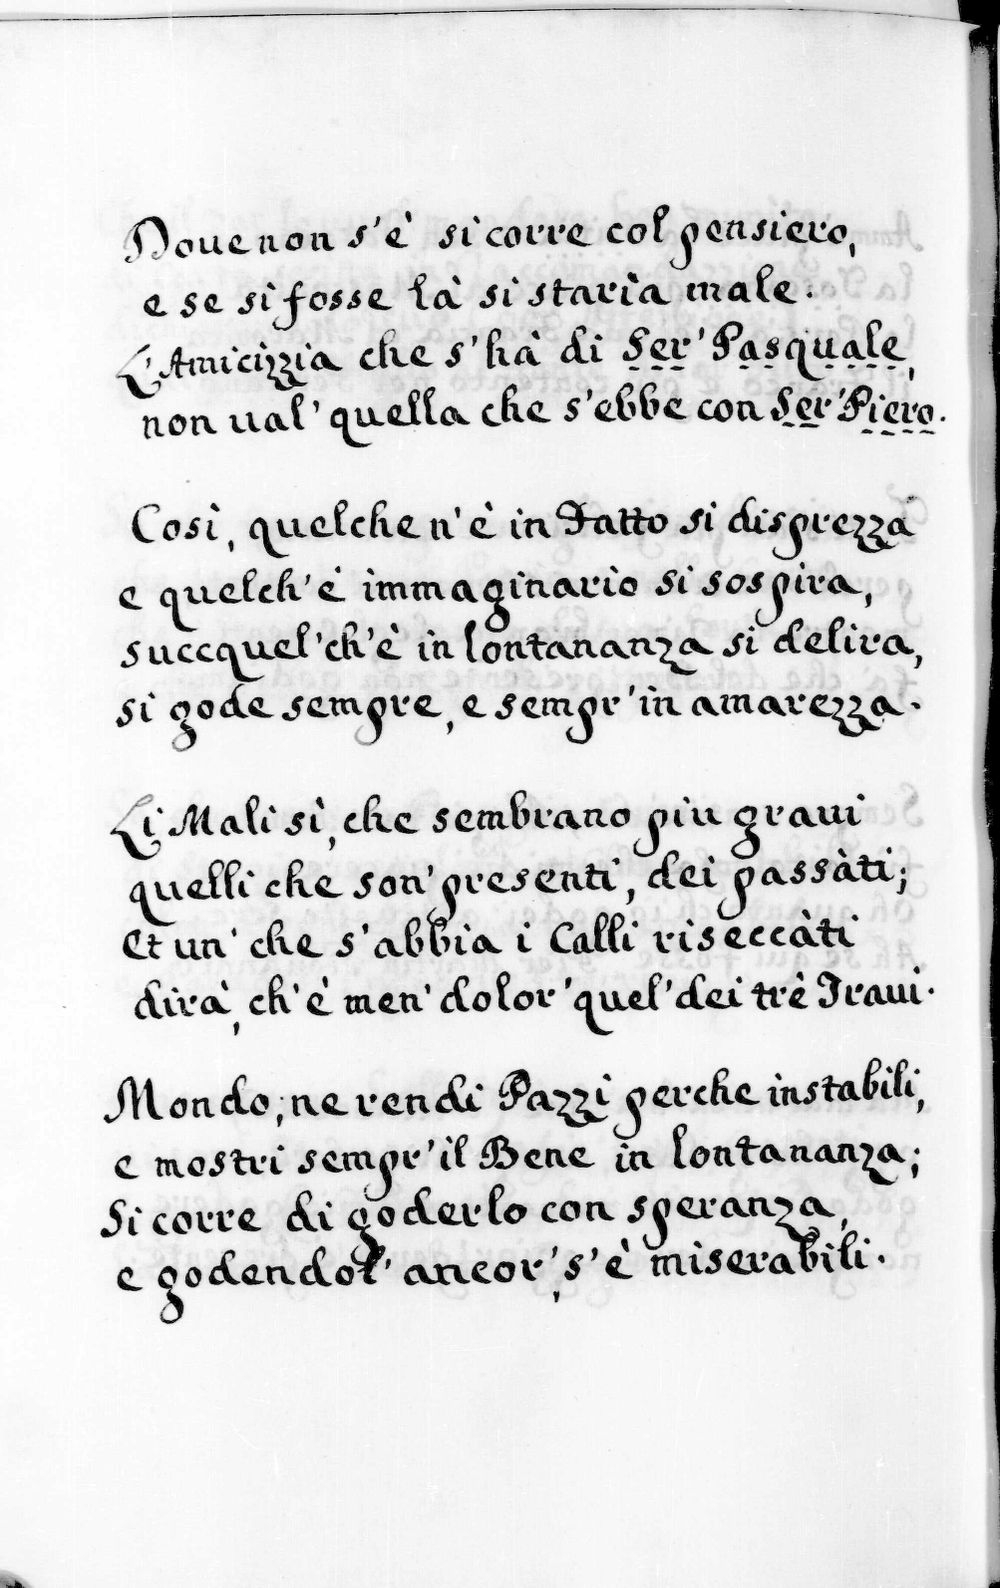 Doue non s'è si corre col pensiero,
e se si fosse là si starìa male.
L'Amicizzia che s'hà di Ser' Pasquale,
non ual' quella che s'ebbe con Ser' Piero.
Così, quelche n'è in Fatto si disprezza
e quelch'è immaginario si sospira,
succquel'ch'è in lontananza si delira,
si gode sempre, e sempr'in amarezza.
Li Mali sì, che sembrano piu graui
quelli che son' presenti, dei passàti;
Et un' che s'abbia i Calli riseccàti
dirà, ch'è men' dolor' quel' dei trè Traui.
Mondo; ne rendi Pazzi perche instabili,
e mostri sempr'il Bene in lontananza;
Si corre di goderlo con speranza,
e godendol' ancor', s'è miserabili.